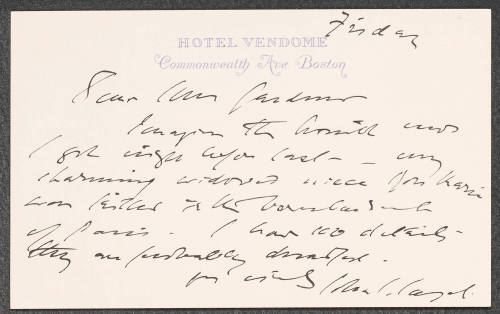 Friday
HOTEL VENDOME
Commonwealth Ave Boston
Dear Mrs Gardner
Imagine the horrid news
I got night before last — my
charming widowed niece Rose Marie
was killed in the bombardment
of Paris. I have no details —
they are probably dreadful.
yrs sincerely
John S. Sargent